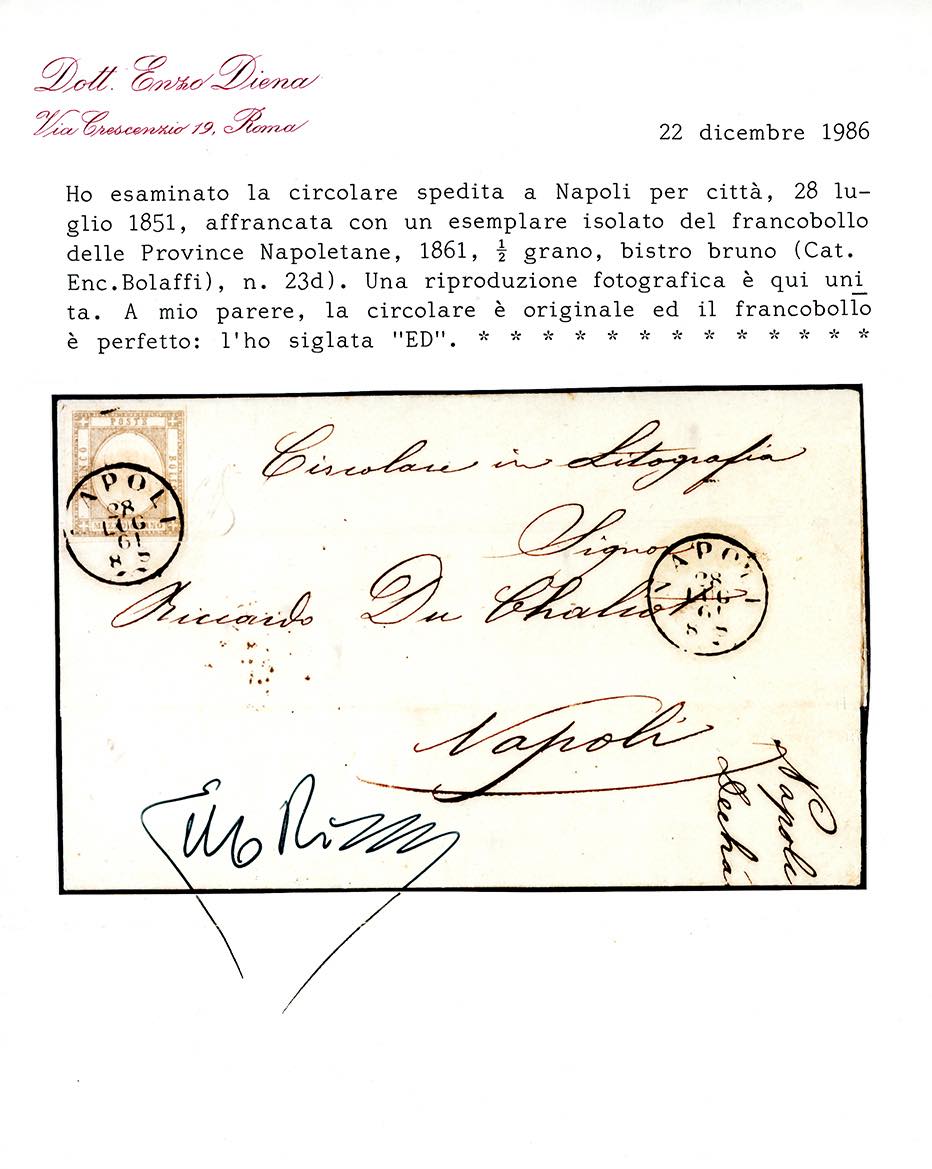 Dott. Enzo Diena
Via Crescenzio 19, Roma
22 dicembre 1986
Ho esaminato la circolare spedita a Napoli per città, 28 lu-
glio 1851, affrancata con un esemplare isolato del francobollo
delle Province Napoletane, 1861, ½ grano, bistro bruno (Cat.
Enc.Bolaffi), n. 23d). Una riproduzione fotografica è qui uni
ta. A mio parere, la circolare è originale ed il francobollo
è perfetto: l'ho siglata "ED". * * * * * * * * * * * *
POSTE
FRANCO
BOLLO
NAPOLI
28
LUG
61
Circolare in Litografia
Signor
Riccardo Du Chaliot
NAPOLI
28
Napoli
Napoli